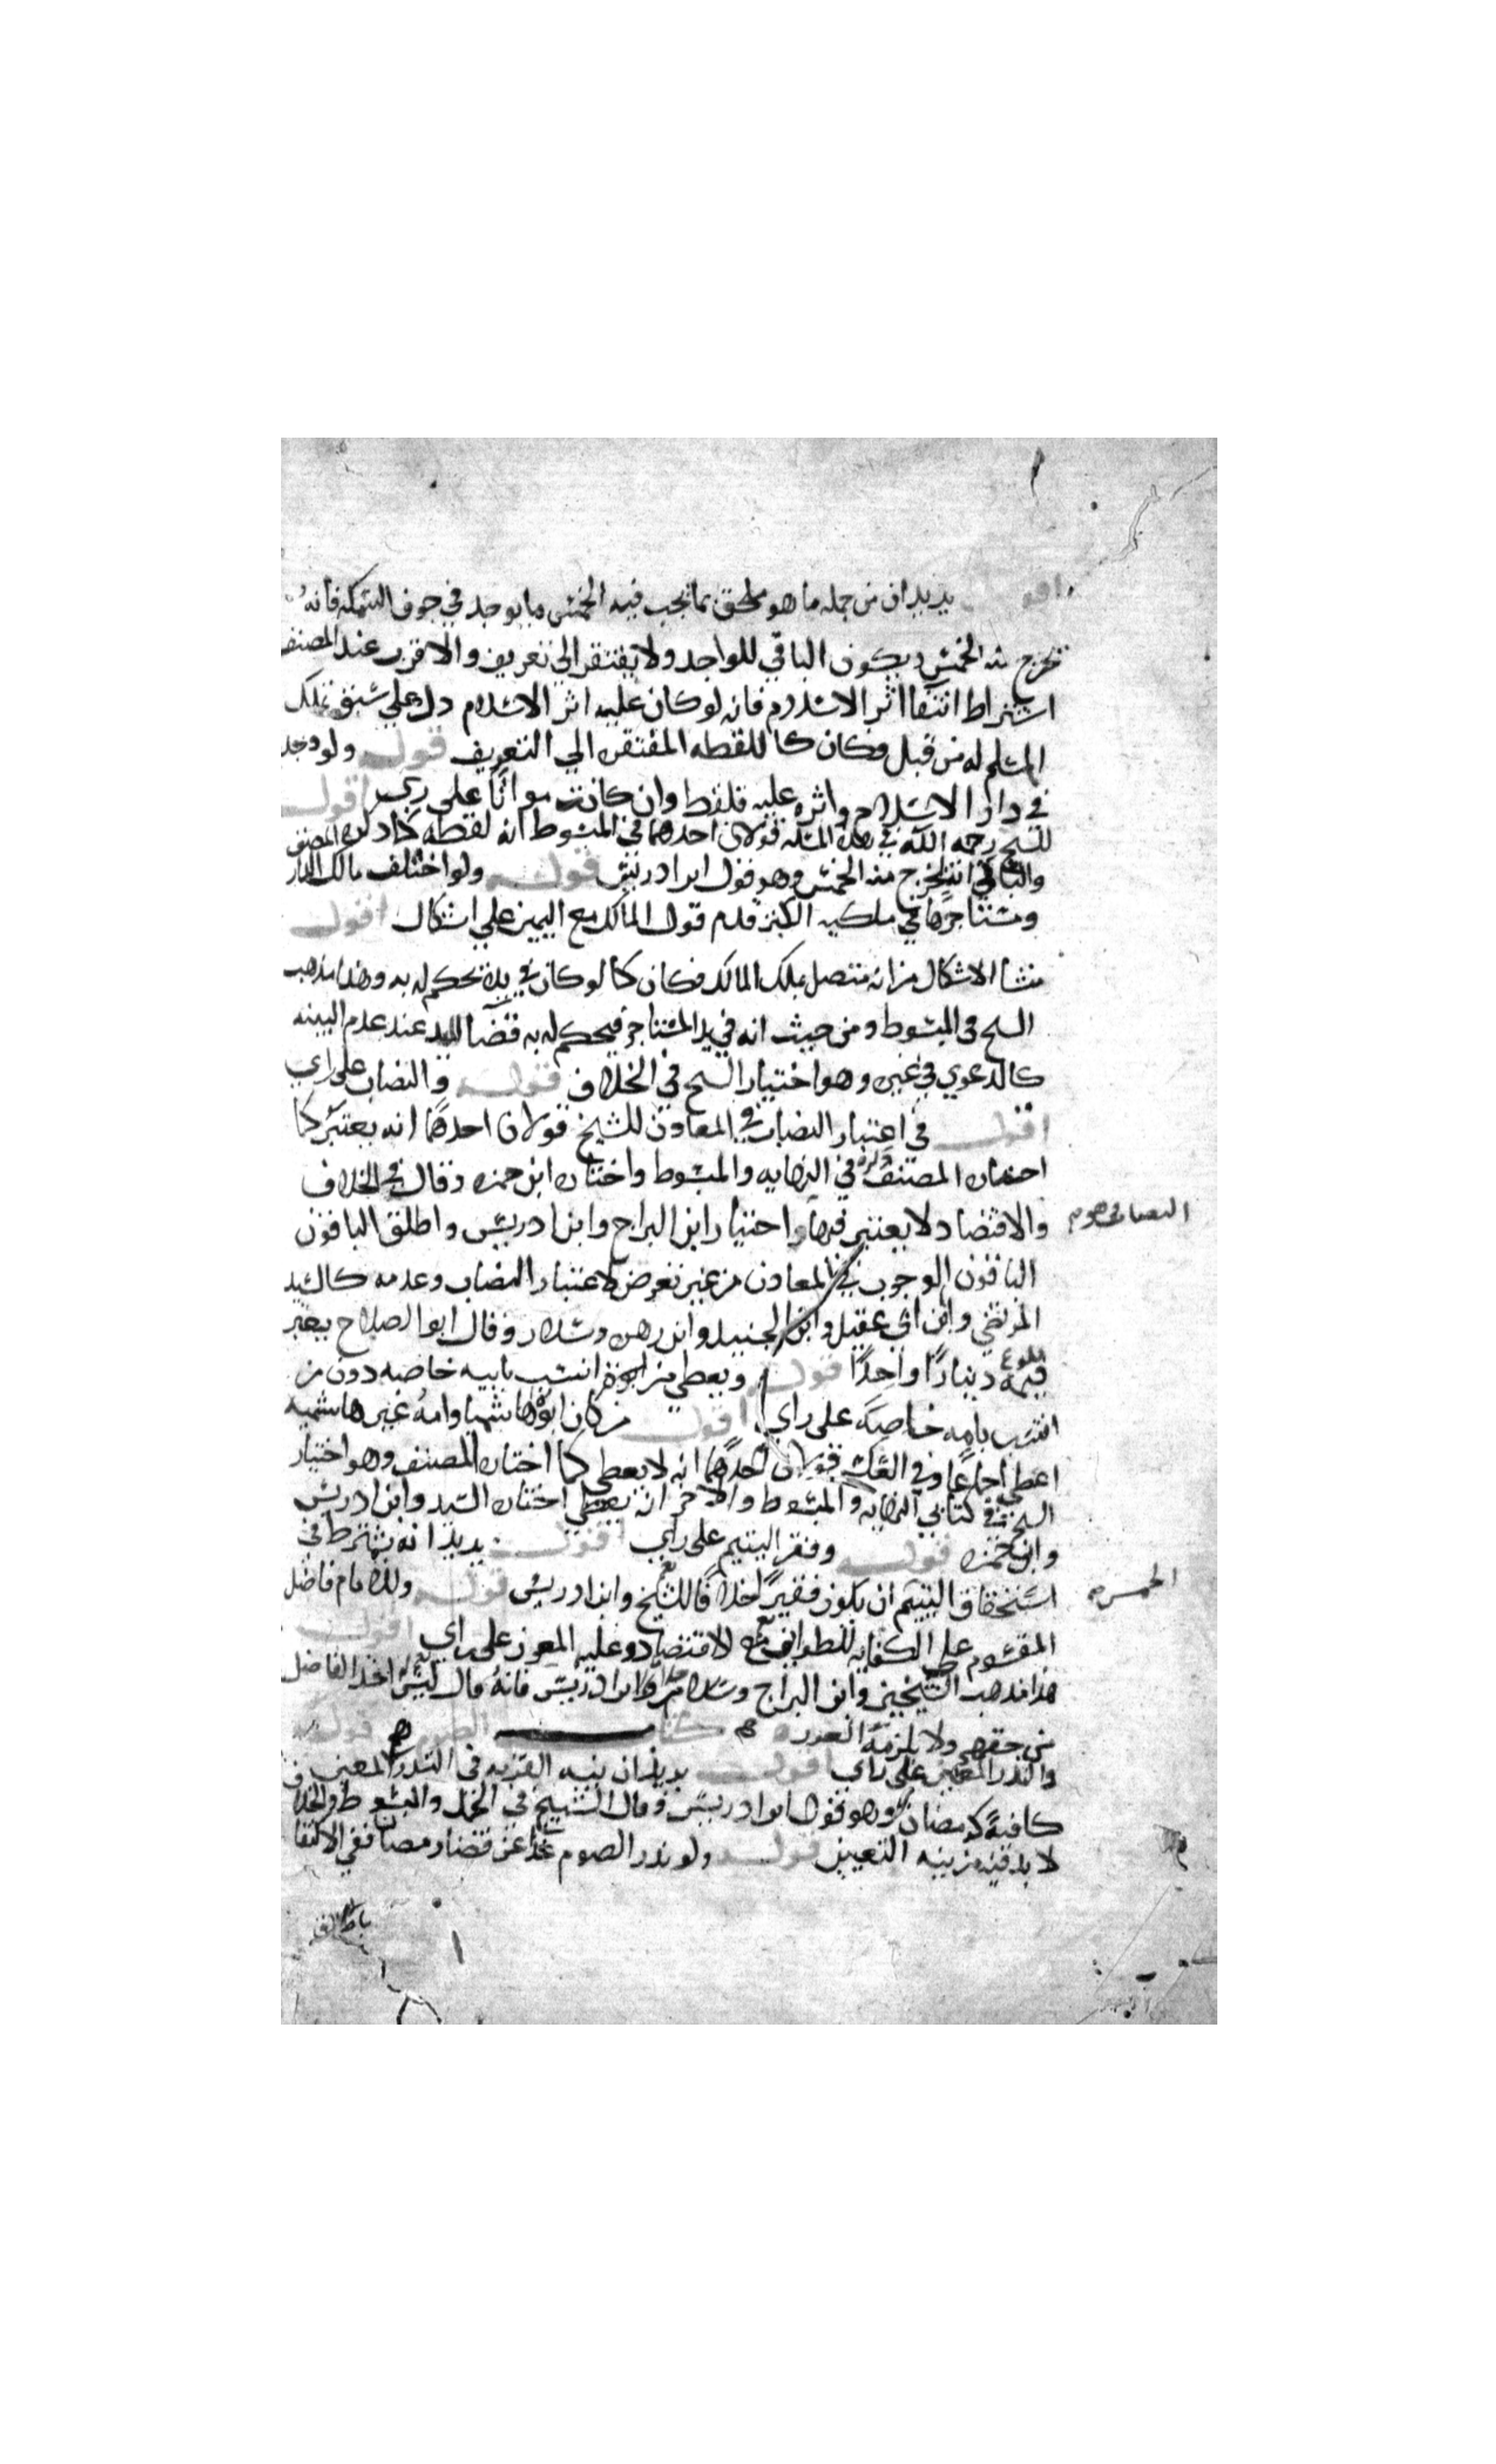 اقول يريد ان من جمله ما هو ملحق بما يجب فيه الخمس ما يوجد في جوف السمكه فانه
يخرج منه الخمس ويكون الباقي للواجد ولا يفتقر الى تعريف والاقرب عند المصنف
اشتراط انتفا اثر الاسلام فانه لو كان عليه اثر الاسلام دل على سبق تملك
المسلم له من قبل فكان كاللقطه المفتقره الي التعريف قوله ولو وجد
في دار الاسلام واثره عليه فلقطه وان كانت مواتا على راي اقول
للشيخ رحمه الله في هذه المسله قولان احدهما في المبسوط انه لقطه كما ذكره المصنف
والثاني انه يخرج منه الخمس وهو قول ابن ادريس قوله ولو اختلف مالك الدار
ومستاجرها في ملكيه الكنز قدم قول المالك مع اليمين علي اشكال اقول
منشا الاشكال من انه متصل بملك المالك فكان كما لو كان في يده يحكم له به وهذا مذهب
الشيخ في المبسوط ومن حيث انه في يد المستاجر فيحكم له به قضا لليد عند عدم البينه
كالدعوي في غيره وهو اختيار الشيخ في الخلاف قوله والنصاب على راي
اقول في اعتبار النصاب في المعادن للشيخ قولان احدهما انه يعتبر كما
اختاره المصنف ذكره في النهايه والمبسوط واختاره ابن حمزه وقال في الخلاف
والاقتصاد لا يعتبر فيها واختيار ابن البراج وابن ادريس واطلق الباقون
الباقون الوجوب في المعادن من غير تعرض لاعتبار النصاب وعدمه كالسيد
المرتضي وابن ابي عقيل وابن الجنيد وابن زهره وسلار وقال ابو الصلاح يعتبر
بلوغ
قيمته دينارا واحدا قوله ويعطي من انتسب بابيه خاصه دون من
انتسب بامه خاصه على راي اقول من كان ابوه هاشميا وامه غير هاشميه
اعطي اجماعا وفي العكس قولان احدهما انه لا يعطي كما اختاره المصنف وهو اختيار
الشيخ في كتابي النهايه والمبسوط والاخر انه يعطي اختاره السيد وابن ادريس
وابن حمزه قوله وفقر اليتيم على راي اقول يريد انه يشترط في
استحقاق اليتيم ان يكون فقيرا خلافا للشيخ وابن ادريس قوله وللامام فاضل
المقسوم على الكفايه للطوايف مع الاقتصاد وعليه المعوز على راي اقول
هذا مذهب الشيخين وابن البراج وسلار خلافا لابن ادريس فانه قال ليس له اخذ الفاضل
من حقهم ولا يلزمه كتاب الصوم قوله
والنذر المعين على راي اقول يريد ان نيه القربه في النذر المعين
كافيه كرمضان وهو قول ابن ادريس وقال الشيخ في الجمل والمبسوط والخلاف
لا بد فيه من نيه التعيين قوله ولو نذر الصوم غدا عن قضا رمضان ففي الاكتفا